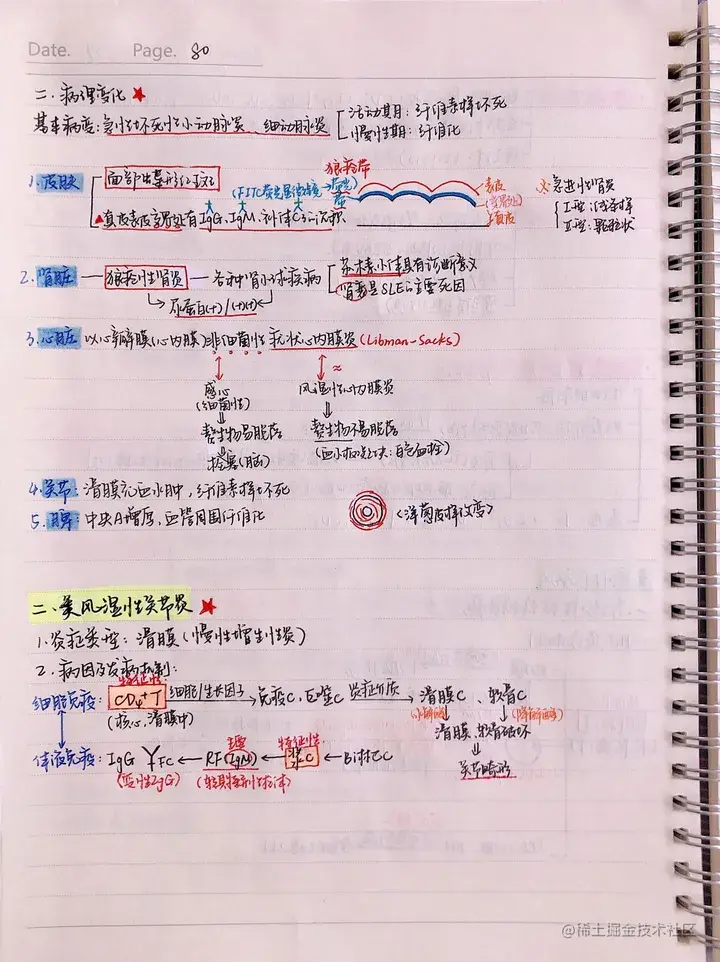 Date. Page. 80
二. 病理变化 ★
基本病变: 急性坏死性小动脉炎 细动脉炎
活动期: 纤维素样坏死
慢性期: 纤维化
1. 皮肤
面部蝶形红斑
▲真皮表皮交界处有IgG、IgM、补体C3沉积
(FITC荧光显微镜→荧光带
狼疮带
表皮
(交界处)
真皮
※急进性肾炎
I型: 线条样
II型: 颗粒状
2. 肾脏 — 狼疮性肾炎 — 各种肾小球疾病
苏木素小体具有诊断意义
肾衰是SLE的主要死因
尿蛋白(+)/(++)
3. 心脏 以心瓣膜(心内膜)非细菌性疣状心内膜炎(Libman-Sacks)
感心
(细菌性)
赘生物易脱落
栓塞(脑)
≈
风湿性心内膜炎
赘生物不易脱落
(血小板凝块: 白色血栓)
4. 关节: 滑膜充血水肿, 纤维素样坏死
5. 脾: 中央A增厚, 血管周围纤维化
(洋葱皮样改变)
二. 类风湿性关节炎 ★
1. 炎症类型: 滑膜(慢性增生性炎)
2. 病因及发病机制:
特征性
细胞免疫: CD4+T 细胞/生长因子→免疫C、巨噬C 炎症介质→滑膜C、软骨C
(核心, 滑膜中)
(降解酶)
滑膜、软骨破坏
关节畸形
主要
特征性
体液免疫: IgG Y FC ← RF(IgM) ← 浆C ← B淋巴C
(变性IgG)
@稀土掘金技术社区